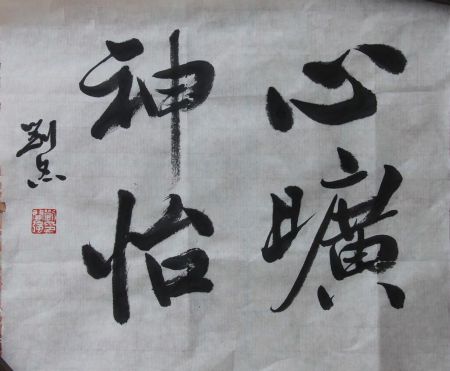 心曠
神怡
劉